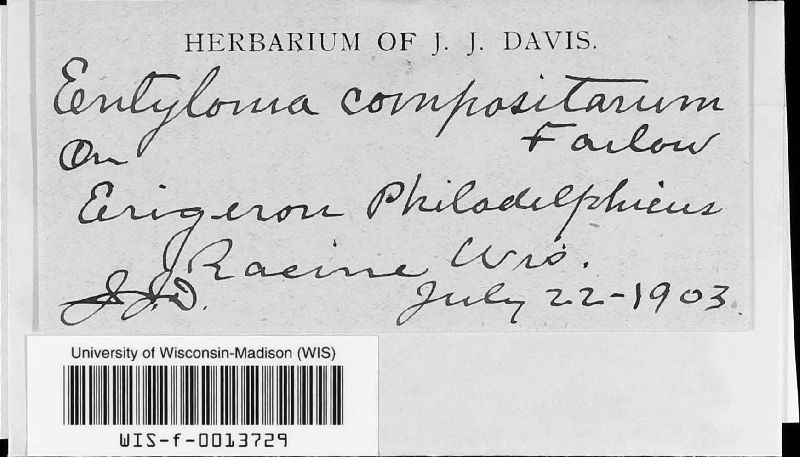 HERBARIUM OF J. J. DAVIS.
Entyloma compositarum
Farlow
On
Erigeron Philadelphicus
Racine Wis.
J.J.D. July 22-1903.
University of Wisconsin-Madison (WIS)
WIS-f-0013729